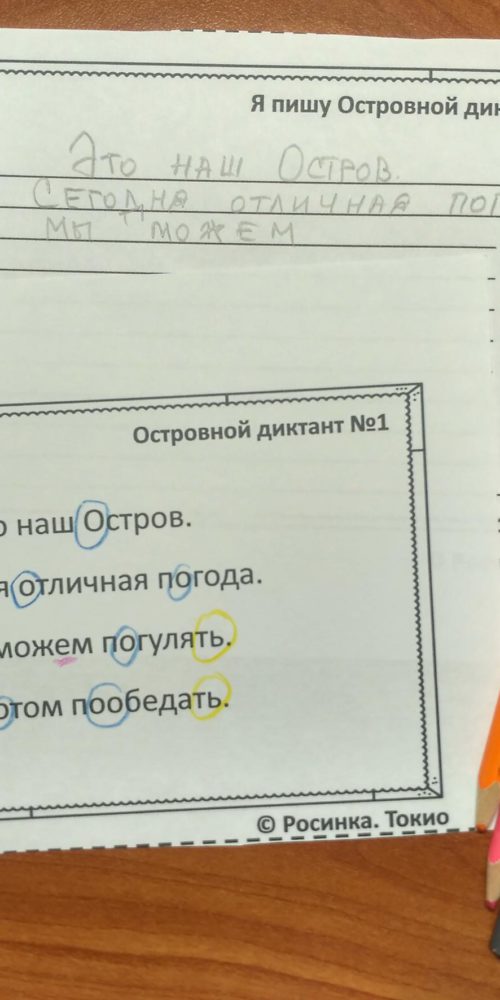 Я пишу Островной дик
Это наш Остров.
Сегодня отличная пог
мы можем
Островной диктант №1
о наш Остров.
я отличная погода.
можем погулять.
отом пообедать.
© Росинка. Токио